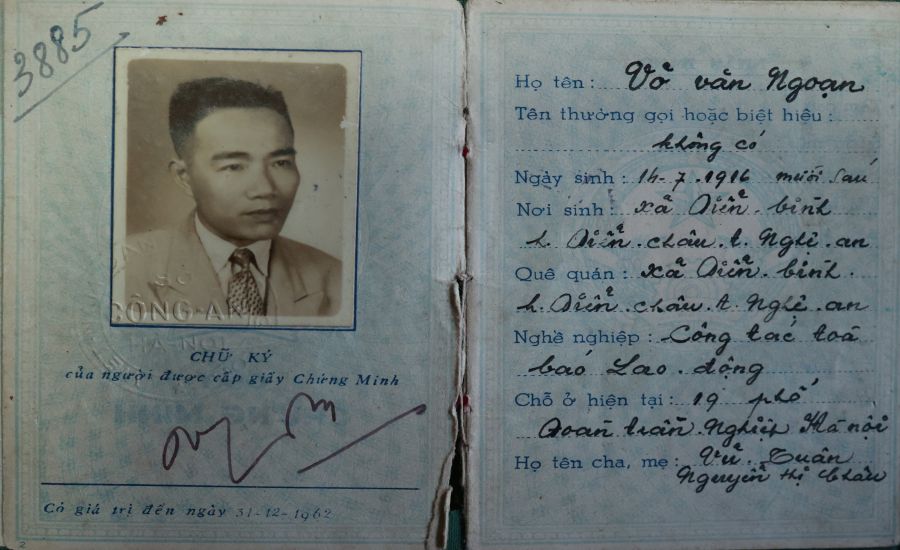 3885
SỞ
CÔNG-AN
HÀ-NỘI
CHỮ KÝ
của người được cấp giấy Chứng Minh
Có giá trị đến ngày 31-12-1962
2
Họ tên: Võ văn Ngoạn
Tên thường gọi hoặc biệt hiệu:
không có
Ngày sinh: 14-7-1916 mười sáu
Nơi sinh: xã Diễn. bình
h. Diễn. châu. t. Nghệ. an
Quê quán: xã Diễn. bình.
h. Diễn. châu. t. Nghệ. an
Nghề nghiệp: Công tác toà
báo Lao. động
Chỗ ở hiện tại: 19 phố
Đoàn trần. Nghiệp Hà nội
Họ tên cha, mẹ: Tuân
Nguyễn thị Châu